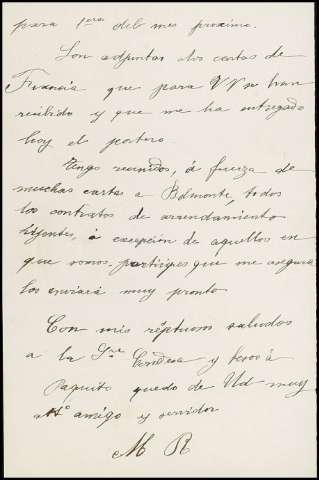 para 1ero del mes proximo.
Son adjuntas dos cartas de
Francia que para VV se han
recibido y que me ha entregado
hoy el portero
Tengo reunidos, á fuerza de
muchas cartas a Belmonte, todos
los contratos de arrendamiento
vijentes, á excepción de aquellos en
que somos participes que me asegura
los enviará muy pronto
Con mis saludos
a la Sra Condesa y besos à
Paquito quedo de Ud muy
atto amigo y servidor
M R